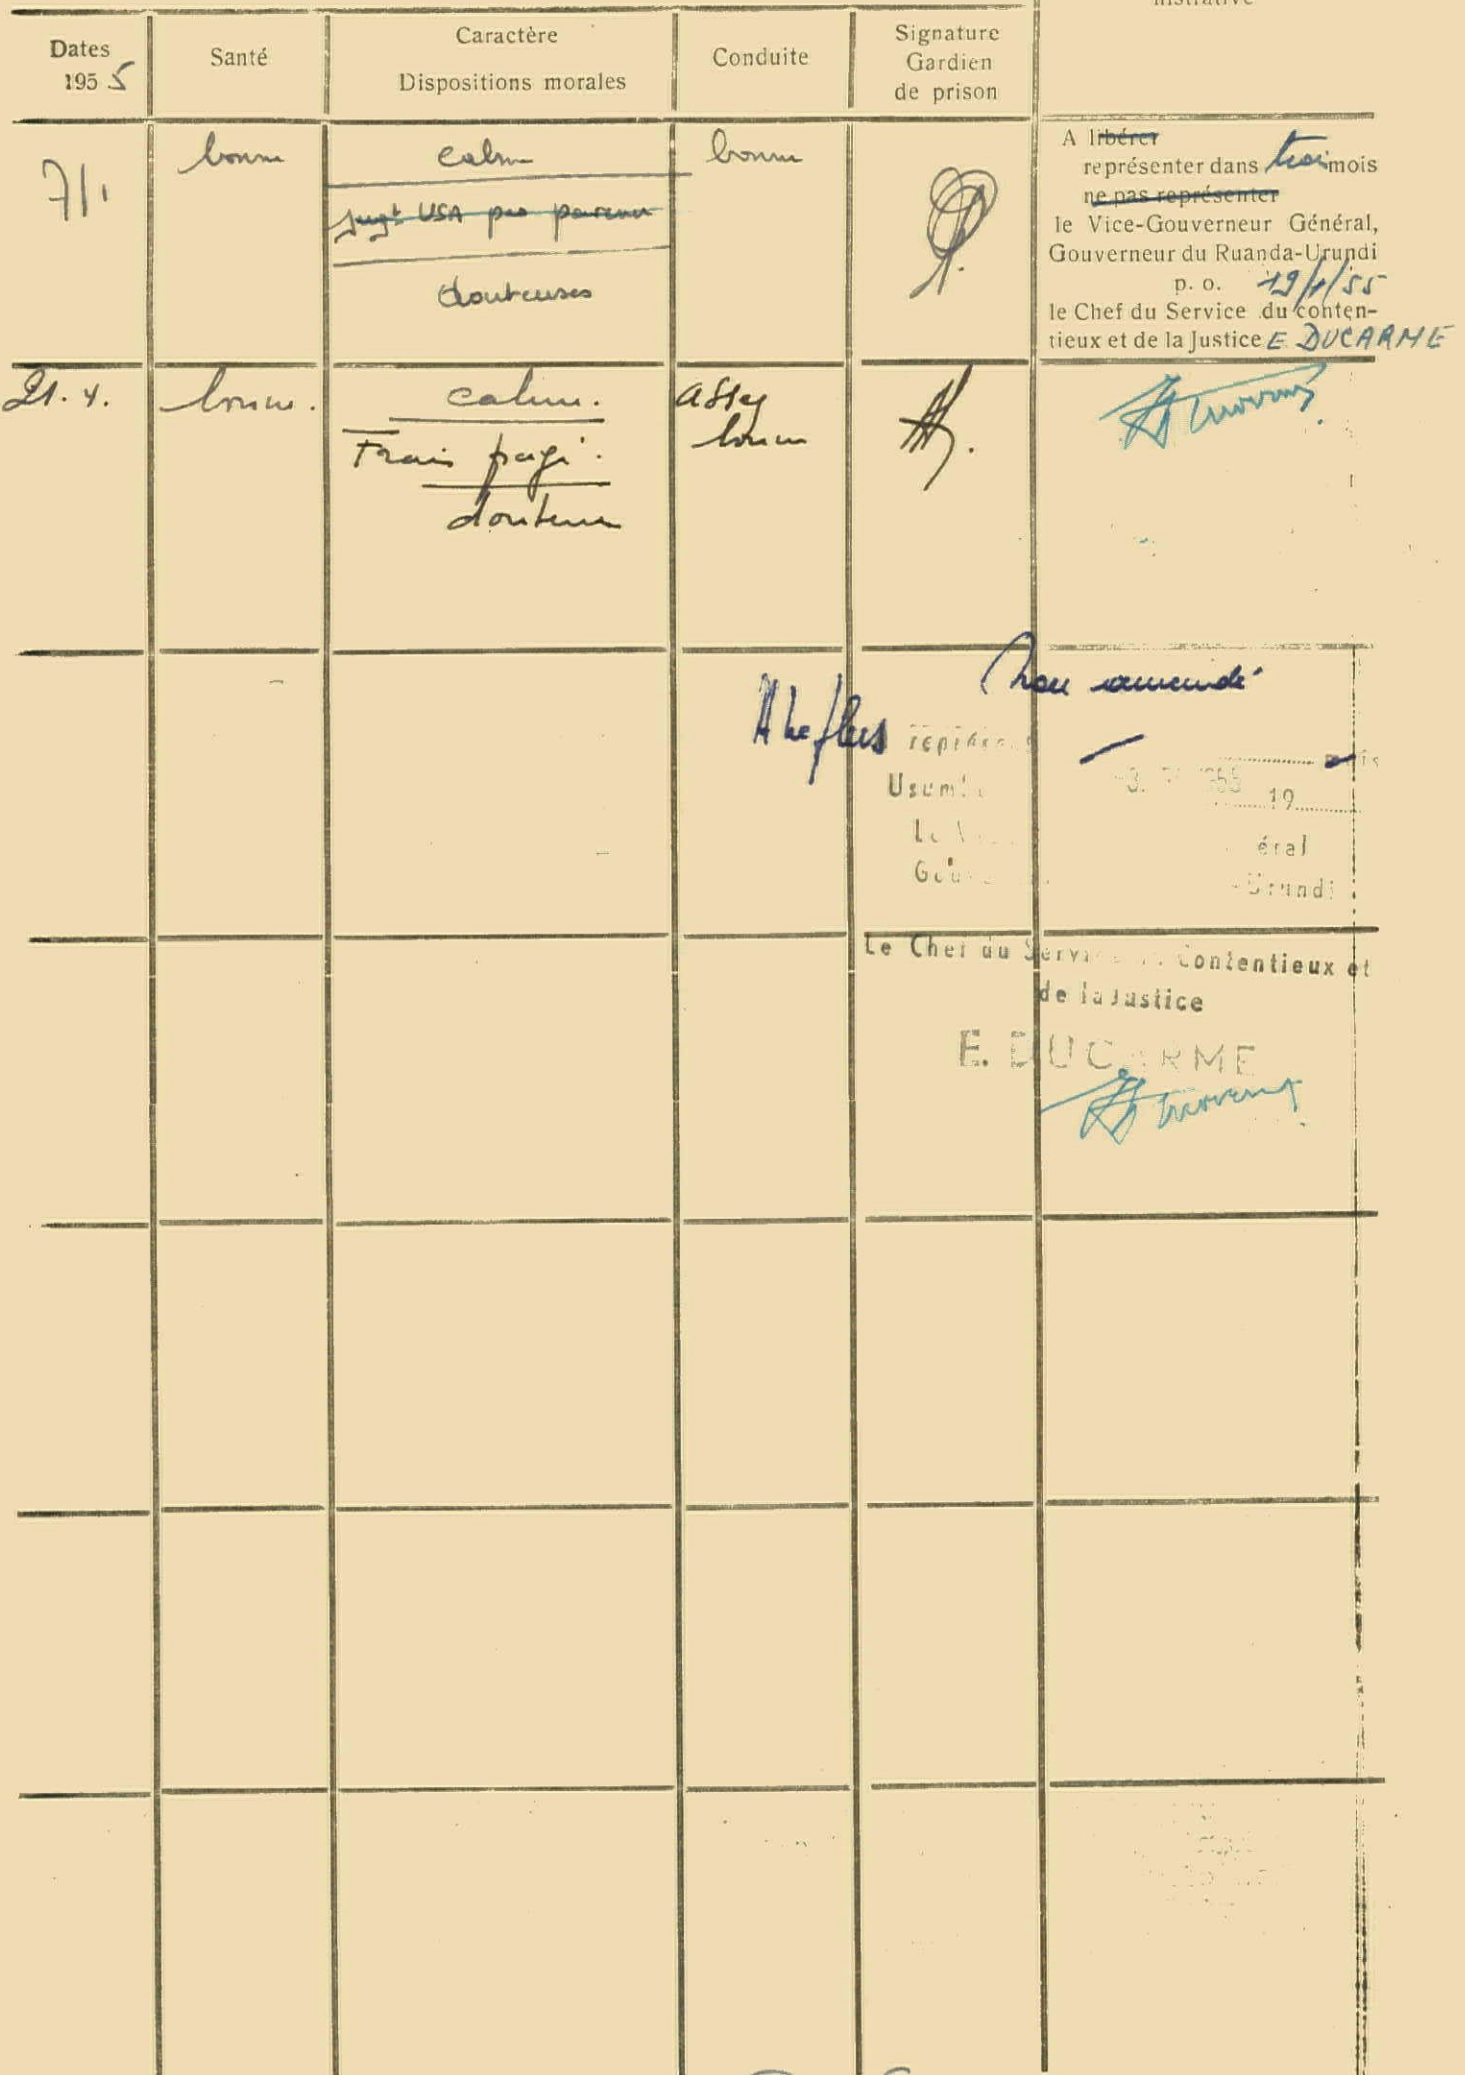 Dates
1955
Santé
Caractère
Dispositions morales
Conduite
Signature
Gardien
de prison
7/1
bonne
calme
Jugt USA pas parvenu
douteuses
bonne
A libérer
représenter dans trois mois
ne pas représenter
le Vice-Gouverneur Général,
Gouverneur du Ruanda-Urundi
p. o. 19/1/55
le Chef du Service du conten-
tieux et de la Justice E. DUCARME
21. 4.
bonne.
calme.
Frais payé.
douteuses
assez
bonne
Non amendé
A ne plus
mois
19
éral
Urundi
Le Chef du Service Contentieux et
de la Justice
E. DUCARME